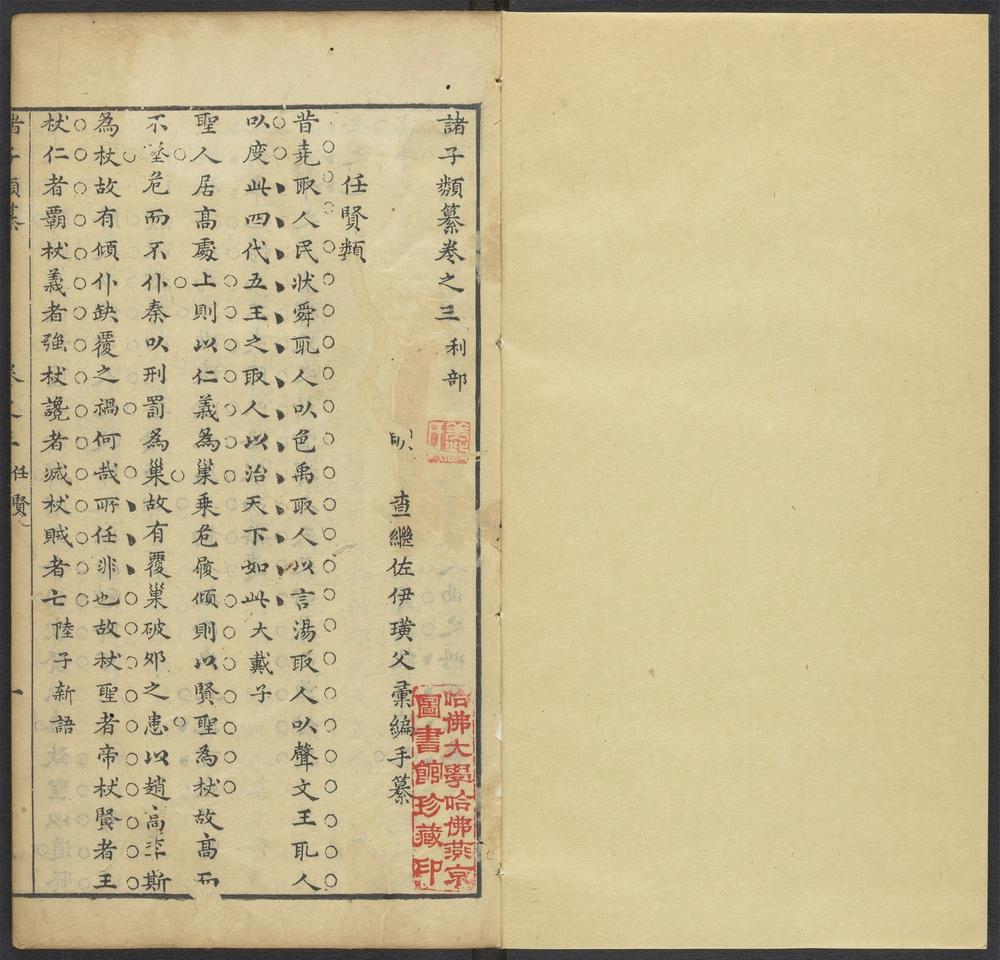 諸子類纂卷之三 利部
明 查繼佐伊璜父彙編手纂
任賢類
昔堯取人民狀舜取人以色禹取人以言湯取人以聲文王取人
以度此四代五王之取人以治天下如此大戴子
聖人居高處上則以仁義為巢乗危履傾則以賢聖為杖故高而
不墜危而不仆秦以刑罰為巢故有覆巢破卵之患以趙高李斯
為杖故有傾仆缺覆之禍何哉所任非也故杖聖者帝杖賢者王
杖仁者覇杖義者強杖讒者滅杖賊者亡陸子新語
諸子類纂 卷之三 任賢 一
哈佛大學哈佛燕京
圖書館珍藏印